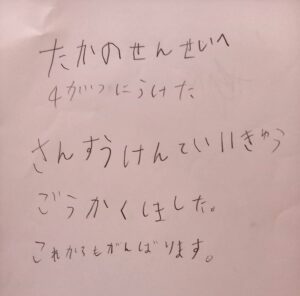 たかのせんせいへ
4がつにうけた
さんすうけんてい11きゅう
ごうかくしました。
これからもがんばります。